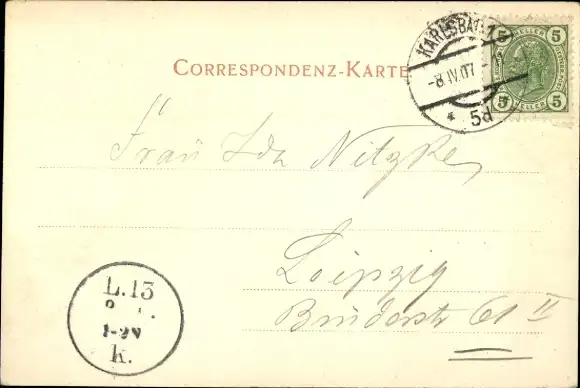 CORRESPONDENZ-KARTE
KARLSBAD 1
-8 IV.07
* 5d *
5 HELLER 5
5 HELLER 5
Frau Ida Nitzke,
Leipzig
Bruderstr 61 II
L.13
1-2N
k.